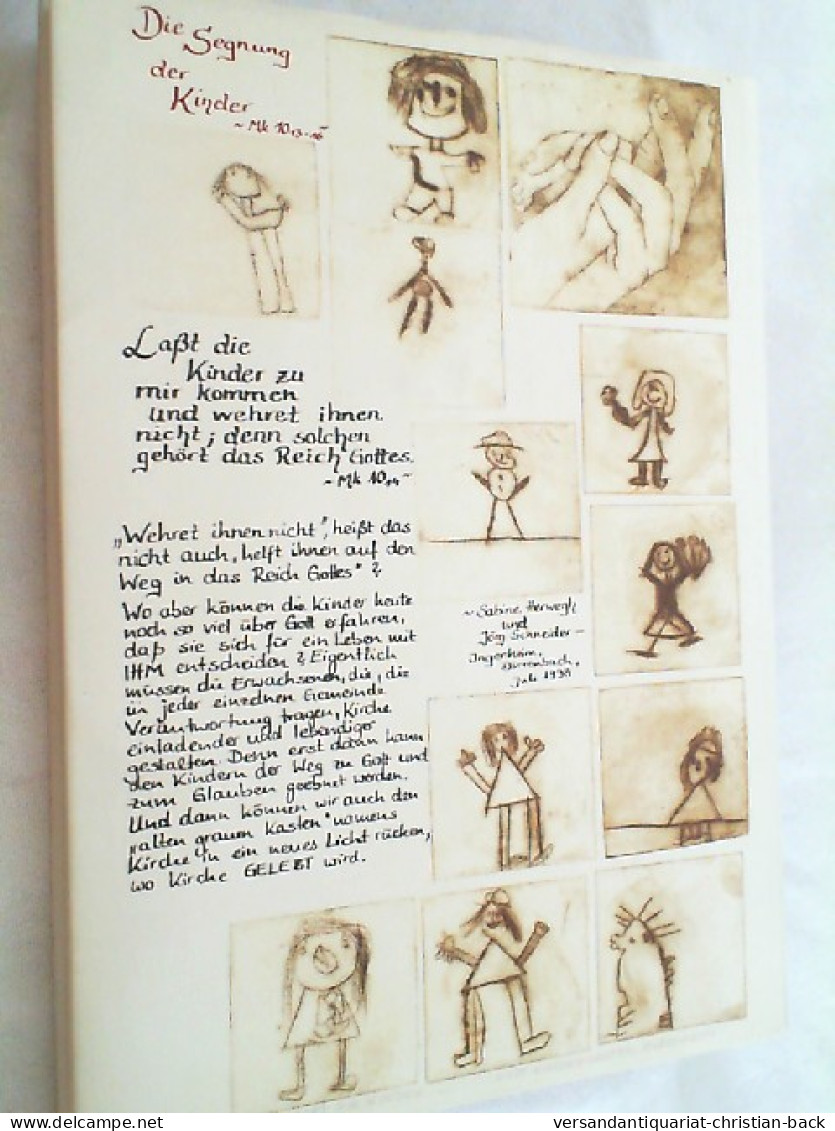 Die Segnung
der
Kinder
~ Mk 10 13-16
Laßt die
Kinder zu
mir kommen
und wehret ihnen
nicht; denn solchen
gehört das Reich Gottes.
~ Mk 10,14 ~
„Wehret ihnen nicht", heißt das
nicht auch „helft ihnen auf den
Weg in das Reich Gottes"?
Wo aber können die Kinder heute
noch so viel über Gott erfahren,
daß sie sich für ein Leben mit
IHM entscheiden? Eigentlich
müssen die Erwachsenen, die, die
in jeder einzelnen Gemeinde
Verantwortung tragen, Kirche
einladender und lebendiger
gestalten. Denn erst dann kann
den Kindern der Weg zu Gott und
zum Glauben geebnet werden.
Und dann können wir auch den
„alten grauen Kasten" namens
Kirche in ein neues Licht rücken,
wo Kirche GELEBT wird.
~ Sabine Herwegh
und
Jörg Schneider –
Ingerheim,
Juli
delcampe.net
versandantiquariat-christian-back